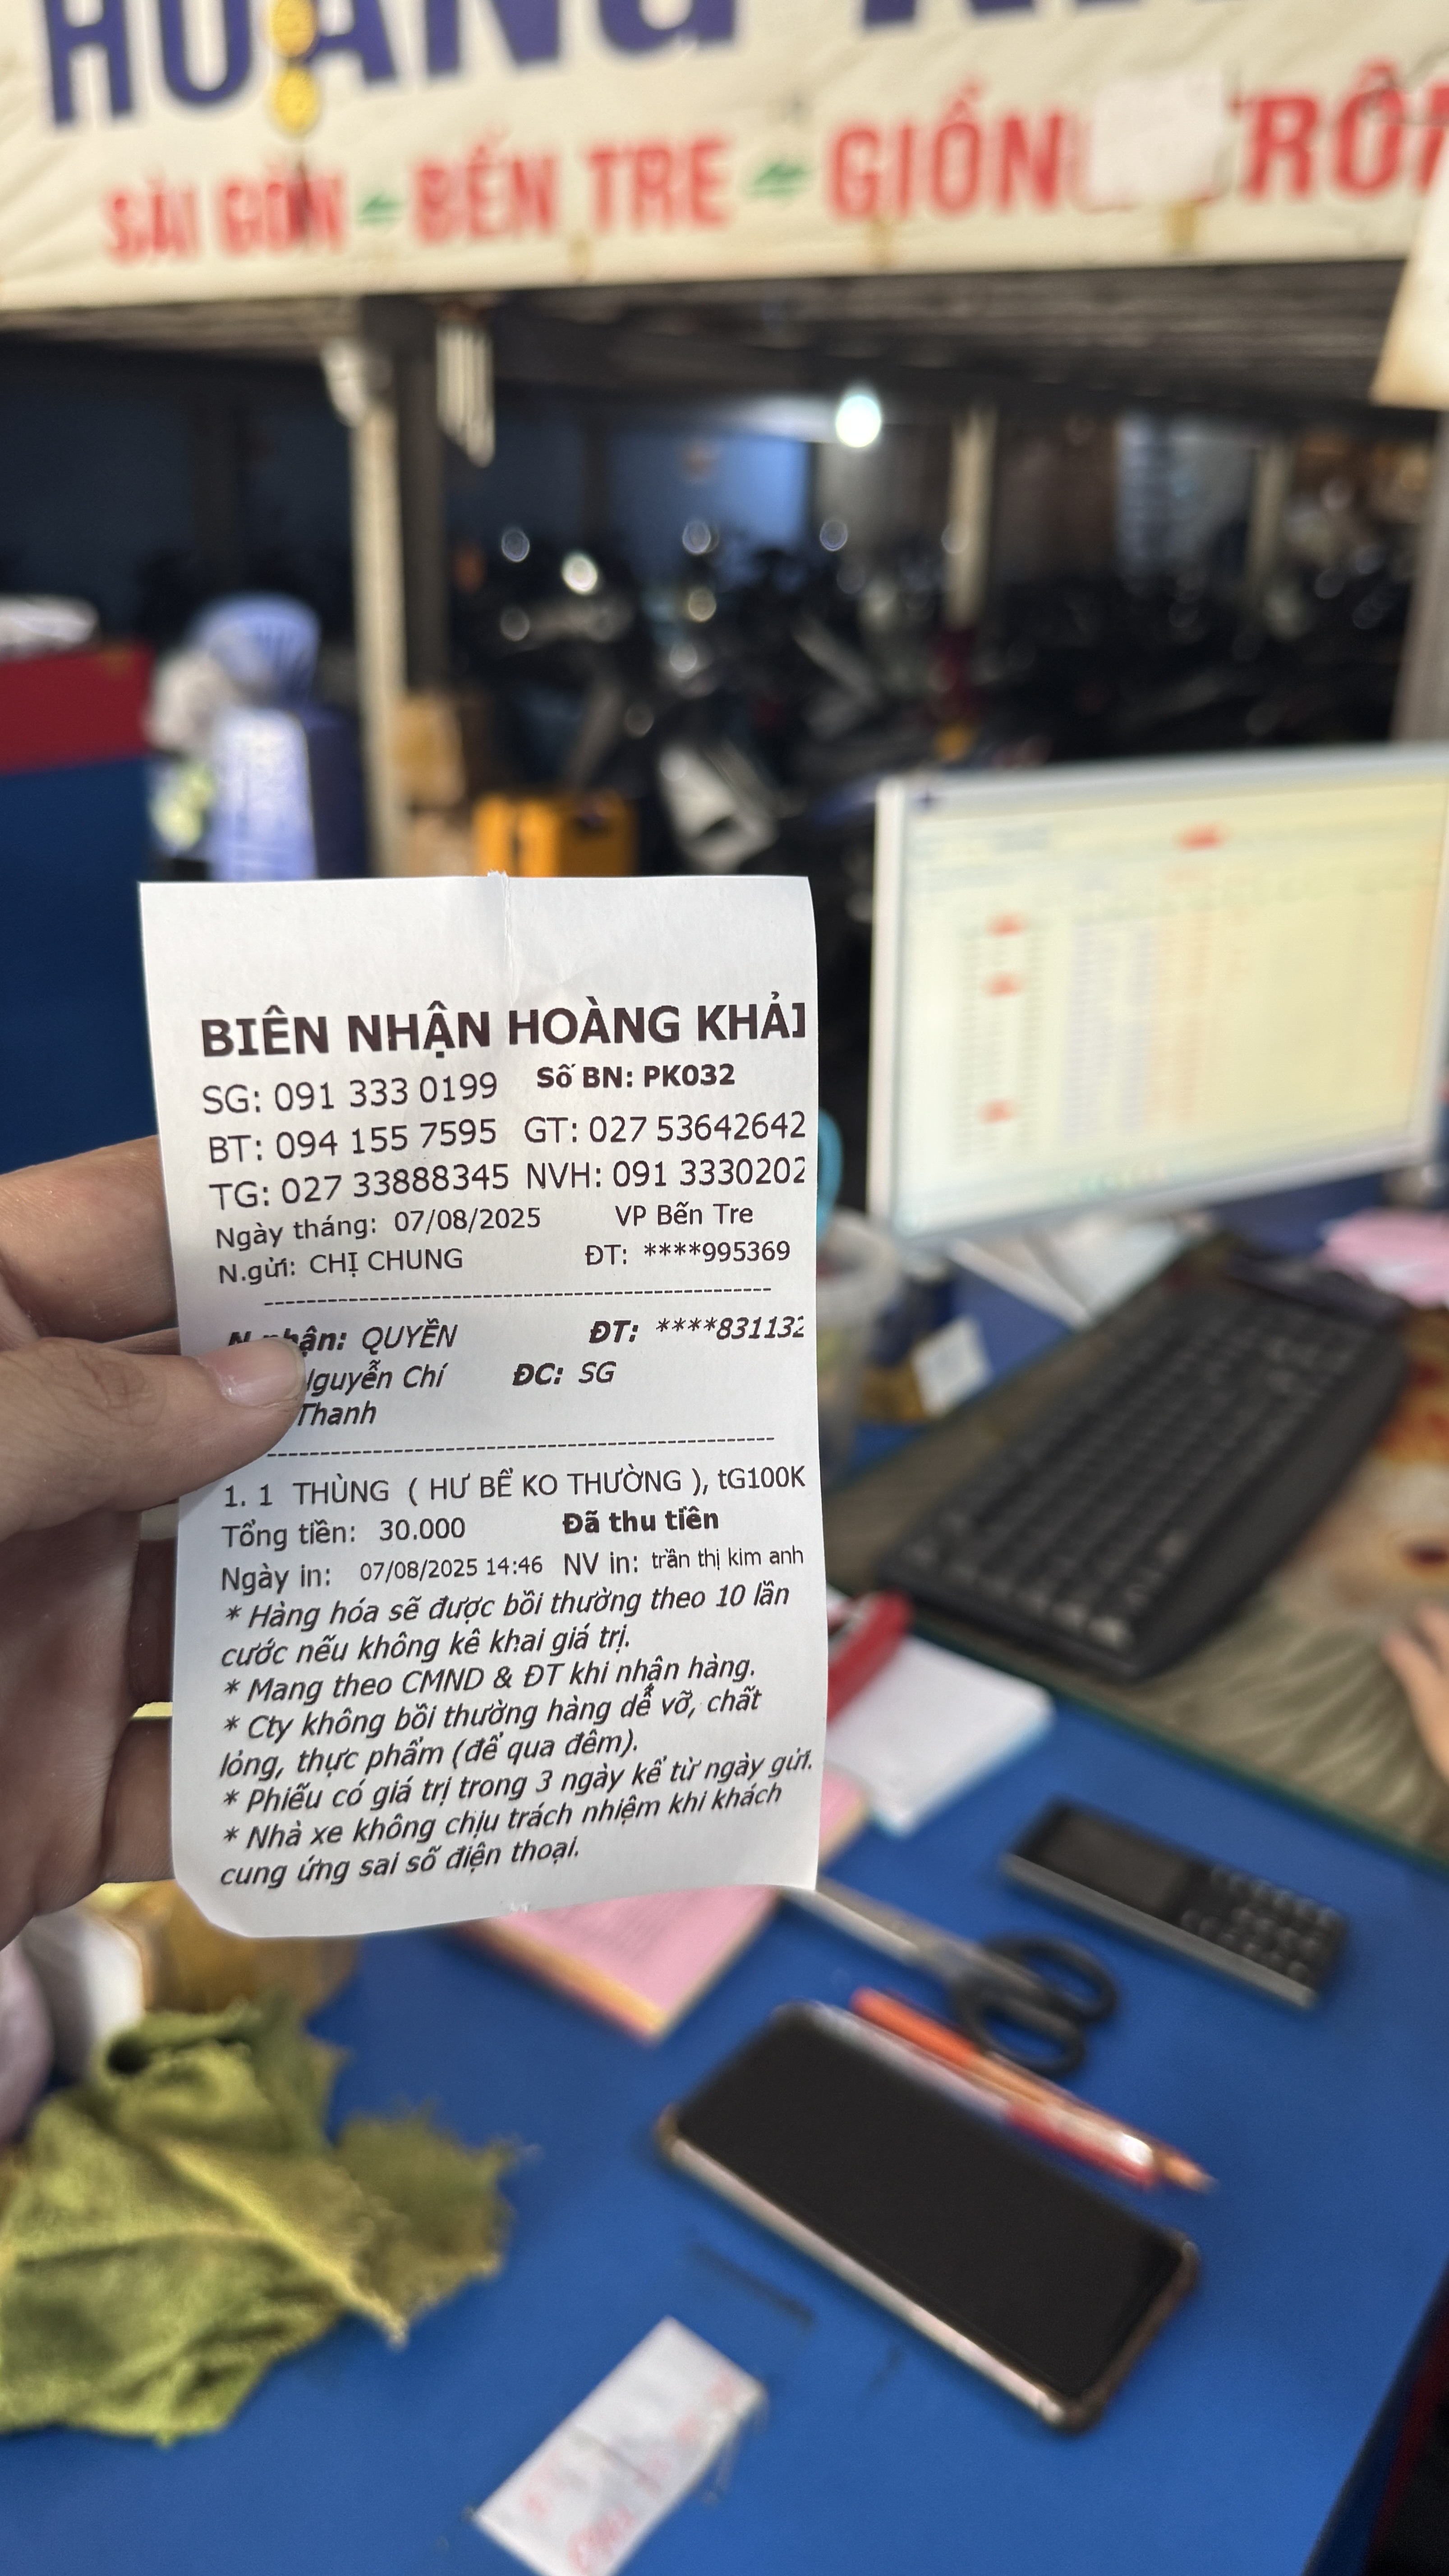 HOÀNG
SÀI GÒN BẾN TRE GIỒNG TRÔ
BIÊN NHẬN HOÀNG KHẢI
SG: 091 333 0199 Số BN: PK032
BT: 094 155 7595 GT: 027 53642642
TG: 027 33888345 NVH: 091 3330202
Ngày tháng: 07/08/2025 VP Bến Tre
N.gửi: CHỊ CHUNG ĐT: ****995369
N.nhận: QUYỀN ĐT: ****831132
Nguyễn Chí ĐC: SG
Thanh
1. 1 THÙNG ( HƯ BỂ KO THƯỜNG ), tG100K
Tổng tiền: 30.000 Đã thu tiền
Ngày in: 07/08/2025 14:46 NV in: trần thị kim anh
* Hàng hóa sẽ được bồi thường theo 10 lần
cước nếu không kê khai giá trị.
* Mang theo CMND & ĐT khi nhận hàng.
* Cty không bồi thường hàng dễ vỡ, chất
lỏng, thực phẩm (để qua đêm).
* Phiếu có giá trị trong 3 ngày kể từ ngày gửi.
* Nhà xe không chịu trách nhiệm khi khách
cung ứng sai số điện thoại.